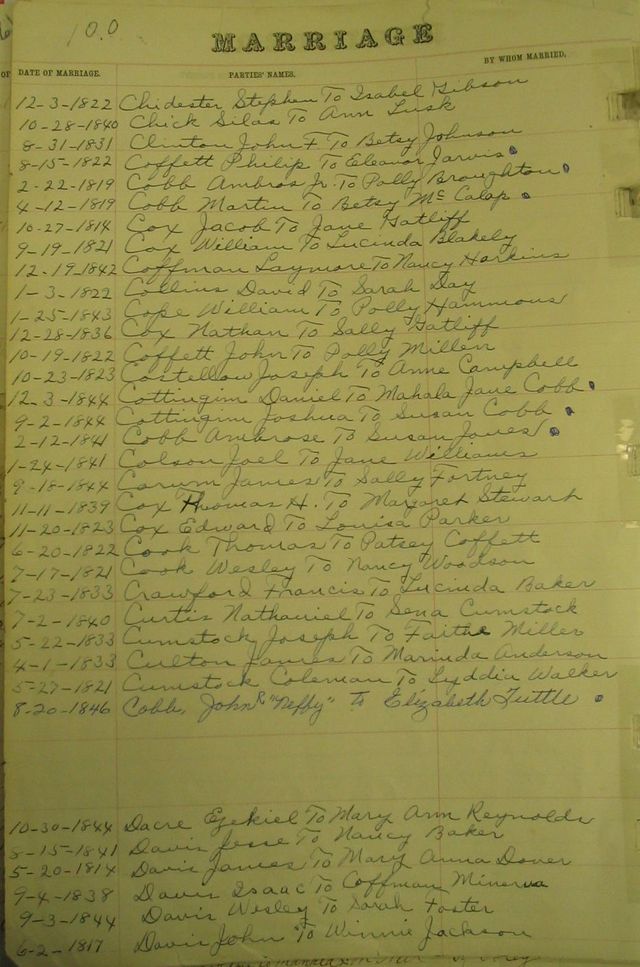 10.0
MARRIAGE
DATE OF MARRIAGE. PARTIES' NAMES. BY WHOM MARRIED,
12-3-1822 Chidester Stephen To Isabel Gibson
10-28-1840 Chick Silas To Ann Lusk
8-31-1831 Clinton John F To Betsy Johnson
8-15-1822 Coffett Philip To Eleanor Jarvis
2-22-1819 Cobb Ambros Jr. To Polly Broughton
4-12-1819 Cobb Martin To Betsy Mc Calap
10-27-1814 Cox Jacob To Jane Gatliff
9-19-1821 Cox William To Lucinda Blakely
12-19-1842 Coffman Laymore To Nancy Harkins
1-3-1822 Collins David To Sarah Day
1-25-1843 Cope William To Polly Hammons
12-28-1836 Cox Nathan To Sally Gatliff
10-19-1822 Coffett John To Polly Miller
10-23-1823 Costellow Joseph To Anne Campbell
12-3-1844 Cottingim Daniel To Mahala Jane Cobb
9-2-1844 Cottingim Joshua To Susan Cobb
2-12-1841 Cobb Ambrose To Susan Jones
1-24-1841 Colson Joel To Jane Williams
9-18-1844 James To Sally Fortney
11-11-1839 Cox Thomas H. To Margaret Stewart
11-20-1823 Cox Edward To Louisa Parker
6-20-1822 Cook Thomas To Patsey Coffett
7-17-1821 Cook Wesley To Nancy Woodson
7-23-1833 Crawford Francis To Lucinda Baker
7-2-1840 Curtis Nathaniel To Sena Cumstock
5-22-1833 Cumstock Joseph To Faithe Miller
4-1-1833 Culton James To Marinda Anderson
5-27-1821 Cumstock Coleman To Lyddia Walker
8-20-1846 Cobb, John R "Neffy" to Elizabeth Tuttle
10-30-1844 Dacre Ezekiel To Mary Ann Reynolds
8-15-1841 Davis Jesse To Nancy Baker
5-20-1814 Davis James To Mary Anna Dover
9-4-1838 Davis Isaac To Coffman Minerva
9-3-1844 Davis Wesley To Sarah Foster
6-2-1817 Davis John To Winnie Jackson